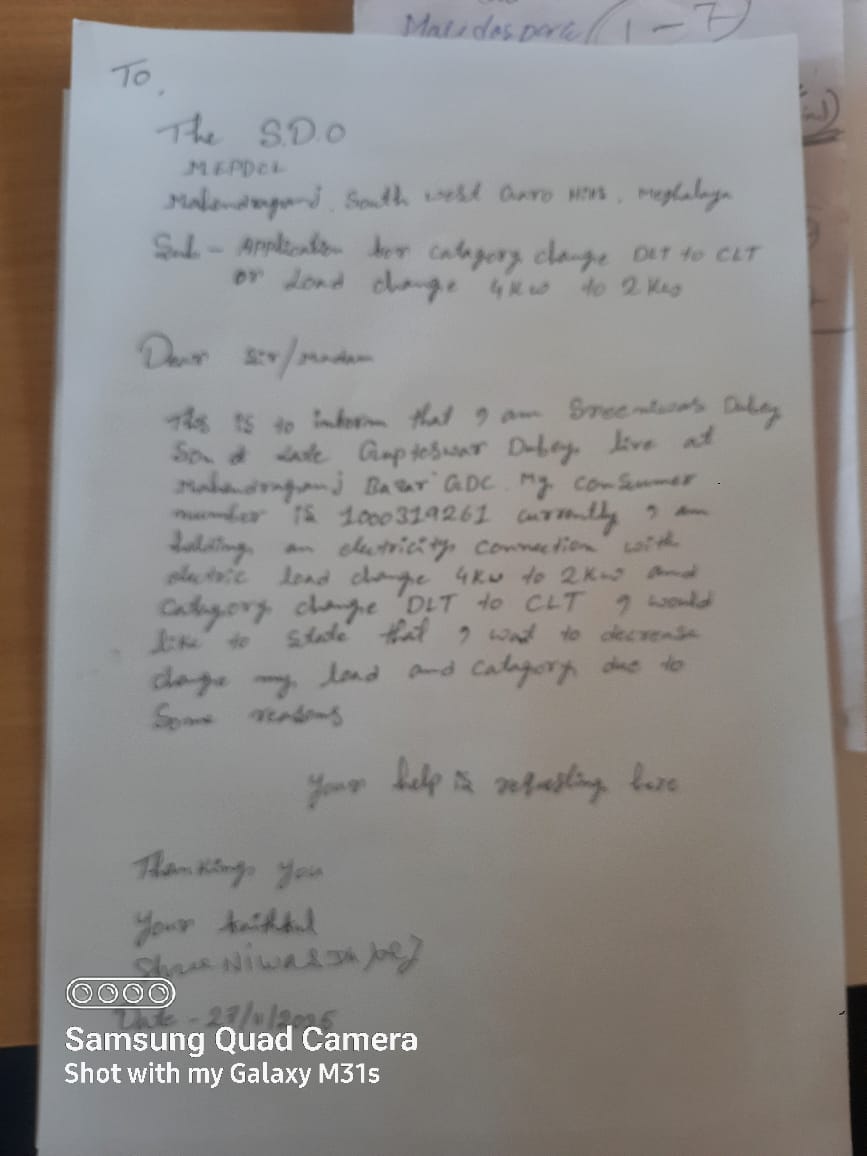 Malidaspara (1-7)
To,
The S.D.O
MEPDCL
Mahendraganj, South west Garo Hills, Meghalaya
Sub - Application for catagory change DLT to CLT
or Load change 4Kw to 2Kw
Dear Sir/madam
This is to inform that I am Sreeniwas Dubey
Son of Late Gupteswar Dubey, live at
Mahendraganj Bazar GDC. My consummer
number is 1000319261 currently I am
holding an electricity connection with
electric load change 4Kw to 2Kw and
Catagory change DLT to CLT I would
like to state that I wat to decrease
change my load and catagory due to
Some reasons
Your help is requesting here
Thanking you
Your faithful
Shree Niwas Dubey
Date - 27/11/2025
Samsung Quad Camera
Shot with my Galaxy M31s